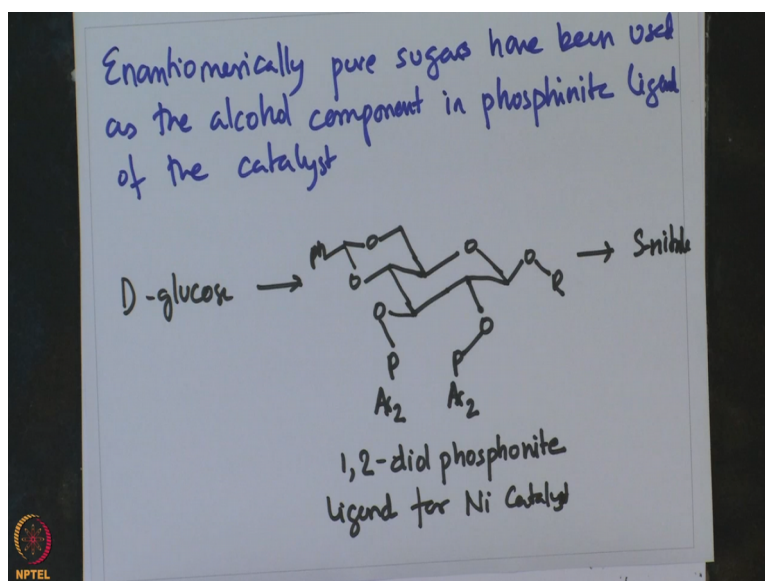 Enantiomerically pure sugars have been used
as the alcohol component in phosphinite ligand
of the catalyst
D-glucose → Ph O O O O R → S-nitrile
O O
P P
Ar2 Ar2
1,2-diol phosphonite
ligand for Ni Catalyst
NPTEL